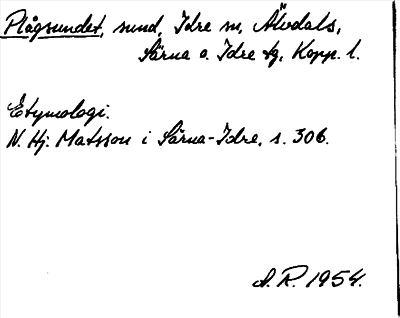 Plågsundet, sund, Idre sn, Älvdals,
Särna o. Idre tg, Kopp. l.
Etymologi.
N. Hj. Matsson i Särna-Idre, s. 306.
A. R. 1954.